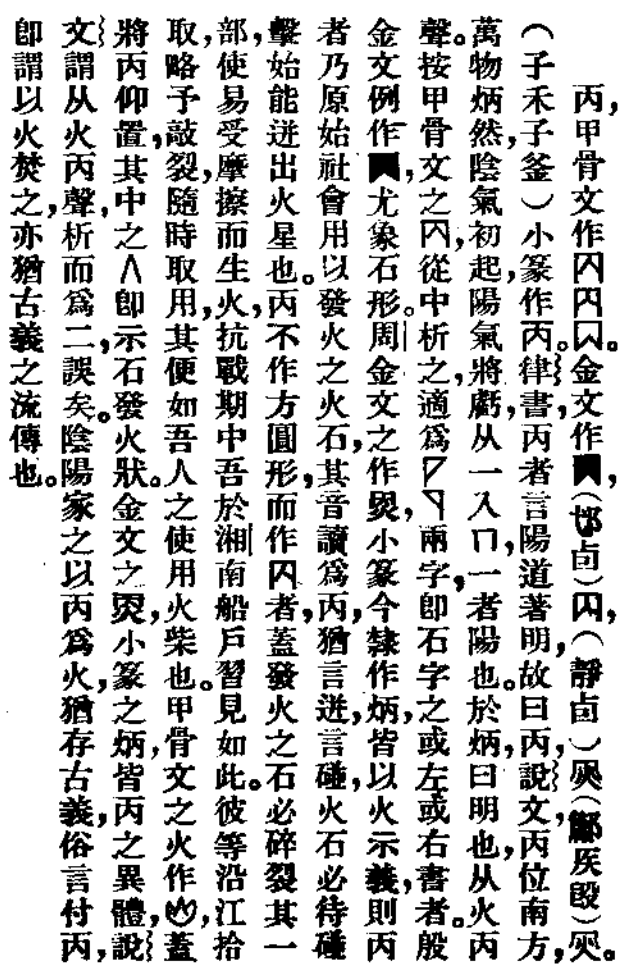 丙，甲骨文作。金文作，（卣），（靜卣）（矦）。
（子禾子釜）小篆作丙。律書，丙者言陽道著明，故曰丙，說文，丙位南方，
萬物炳然，陰氣初起，陽氣將虧，从一入冂，一者陽也。於炳曰明也，从火丙
聲。按甲骨文之，從中析之，適爲，兩字，卽石字之或左或右書者。殷
金文例作，尤象石形。周金文之作，小篆今隸作炳，皆以火示義，則丙
者乃原始社會用以發火之火石，其音讀爲丙，猶言迸，言碰，火石必待碰
擊始能迸出火星也。丙不作方圓形，而作者，蓋發火之石必碎裂其一
部，使易受摩擦而生火，抗戰期中吾於湘南船戶習見如此。彼等沿江拾
取，略予敲裂，隨時取用，其便如吾人之使用火柴也。甲骨文之火作，蓋
將丙仰置，其中之∧卽示石發火狀。金文之，小篆之炳，皆丙之異體，說
文謂从火丙聲，析而爲二，誤矣。陰陽家之以丙爲火，猶存古義，俗言付丙，
卽謂以火焚之，亦猶古義之流傳也。